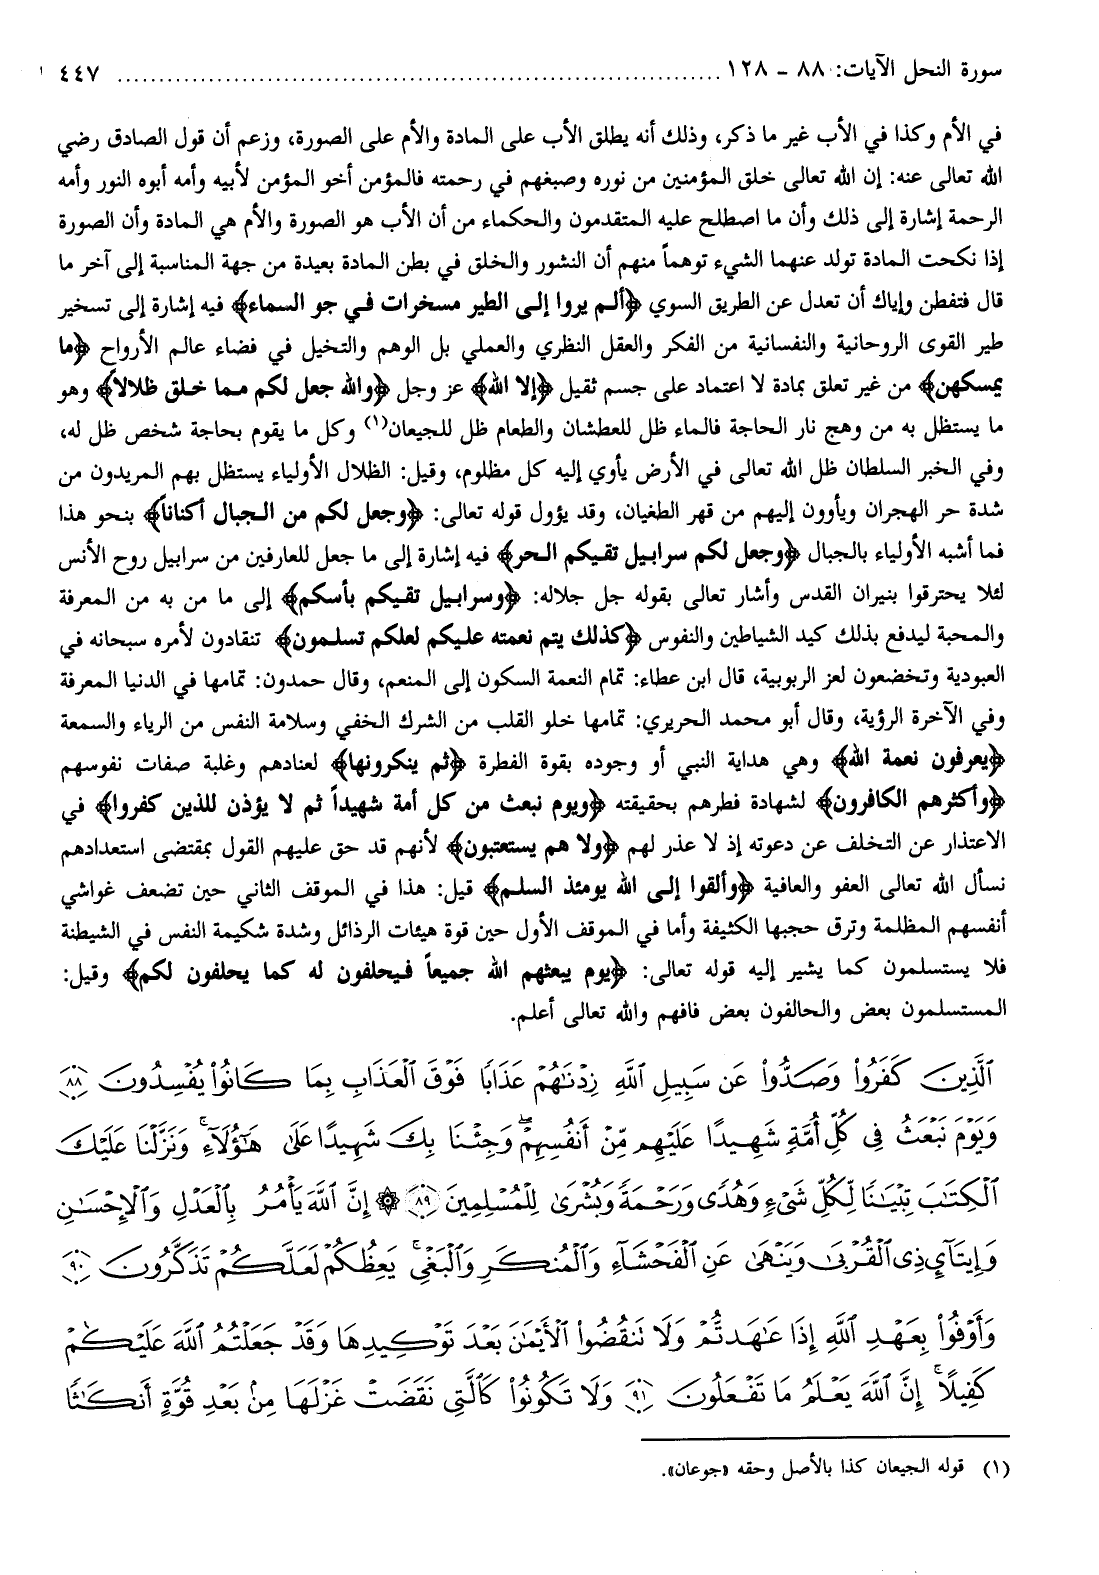 سورة النحل الآيات: ٨٨ - ١٢٨ ........................................................................ ٤٤٧
في الأم وكذا في الأب غير ما ذكر، وذلك أنه يطلق الأب على المادة والأم على الصورة، وزعم أن قول الصادق رضي
الله تعالى عنه: إن الله تعالى خلق المؤمنين من نوره وصبغهم في رحمته فالمؤمن أخو المؤمن لأبيه وأمه أبوه النور وأمه
الرحمة إشارة إلى ذلك وأن ما اصطلح عليه المتقدمون والحكماء من أن الأب هو الصورة والأم هي المادة وأن الصورة
إذا نكحت المادة تولد عنهما الشيء توهماً منهم أن النشور والخلق في بطن المادة بعيدة من جهة المناسبة إلى آخر ما
قال فتفطن وإياك أن تعدل عن الطريق السوي ﴿ألم يروا إلى الطير مسخرات في جو السماء﴾ فيه إشارة إلى تسخير
طير القوى الروحانية والنفسانية من الفكر والعقل النظري والعملي بل الوهم والتخيل في فضاء عالم الأرواح ﴿ما
يمسكهن﴾ من غير تعلق بمادة لا اعتماد على جسم ثقيل ﴿إلا الله﴾ عز وجل ﴿والله جعل لكم مما خلق ظلالاً﴾ وهو
ما يستظل به من وهج نار الحاجة فالماء ظل للعطشان والطعام ظل للجيعان(١) وكل ما يقوم بحاجة شخص ظل له،
وفي الخبر السلطان ظل الله تعالى في الأرض يأوي إليه كل مظلوم، وقيل: الظلال الأولياء يستظل بهم المريدون من
شدة حر الهجران ويأوون إليهم من قهر الطغيان، وقد يؤول قوله تعالى: ﴿وجعل لكم من الجبال أكناناً﴾ بنحو هذا
فما أشبه الأولياء بالجبال ﴿وجعل لكم سرابيل تقيكم الحر﴾ فيه إشارة إلى ما جعل للعارفين من سرابيل روح الأنس
لئلا يحترقوا بنيران القدس وأشار تعالى بقوله جل جلاله: ﴿وسرابيل تقيكم بأسكم﴾ إلى ما من به من المعرفة
والمحبة ليدفع بذلك كيد الشياطين والنفوس ﴿كذلك يتم نعمته عليكم لعلكم تسلمون﴾ تنقادون لأمره سبحانه في
العبودية وتخضعون لعز الربوبية، قال ابن عطاء: تمام النعمة السكون إلى المنعم، وقال حمدون: تمامها في الدنيا المعرفة
وفي الآخرة الرؤية، وقال أبو محمد الحريري: تمامها خلو القلب من الشرك الخفي وسلامة النفس من الرياء والسمعة
﴿يعرفون نعمة الله﴾ وهي هداية النبي أو وجوده بقوة الفطرة ﴿ثم ينكرونها﴾ لعنادهم وغلبة صفات نفوسهم
﴿وأكثرهم الكافرون﴾ لشهادة فطرهم بحقيقته ﴿ويوم نبعث من كل أمة شهيداً ثم لا يؤذن للذين كفروا﴾ في
الاعتذار عن التخلف عن دعوته إذ لا عذر لهم ﴿ولا هم يستعتبون﴾ لأنهم قد حق عليهم القول بمقتضى استعدادهم
نسأل الله تعالى العفو والعافية ﴿وألقوا إلى الله يومئذ السلم﴾ قيل: هذا في الموقف الثاني حين تضعف غواشي
أنفسهم المظلمة وترق حجبها الكثيفة وأما في الموقف الأول حين قوة هيئات الرذائل وشدة شكيمة النفس في الشيطنة
فلا يستسلمون كما يشير إليه قوله تعالى: ﴿يوم يبعثهم الله جميعاً فيحلفون له كما يحلفون لكم﴾ وقيل:
المستسلمون بعض والحالفون بعض فافهم والله تعالى أعلم.
ٱلَّذِينَ كَفَرُوا۟ وَصَدُّوا۟ عَن سَبِيلِ ٱللَّهِ زِدْنَٰهُمْ عَذَابًا فَوْقَ ٱلْعَذَابِ بِمَا كَانُوا۟ يُفْسِدُونَ ٨٨
وَيَوْمَ نَبْعَثُ فِى كُلِّ أُمَّةٍ شَهِيدًا عَلَيْهِم مِّنْ أَنفُسِهِمْ ۖ وَجِئْنَا بِكَ شَهِيدًا عَلَىٰ هَٰٓؤُلَآءِ ۚ وَنَزَّلْنَا عَلَيْكَ
ٱلْكِتَٰبَ تِبْيَٰنًا لِّكُلِّ شَىْءٍ وَهُدًى وَرَحْمَةً وَبُشْرَىٰ لِلْمُسْلِمِينَ ٨٩ ۞ إِنَّ ٱللَّهَ يَأْمُرُ بِٱلْعَدْلِ وَٱلْإِحْسَٰنِ
وَإِيتَآئِ ذِى ٱلْقُرْبَىٰ وَيَنْهَىٰ عَنِ ٱلْفَحْشَآءِ وَٱلْمُنكَرِ وَٱلْبَغْىِ ۚ يَعِظُكُمْ لَعَلَّكُمْ تَذَكَّرُونَ ٩٠
وَأَوْفُوا۟ بِعَهْدِ ٱللَّهِ إِذَا عَٰهَدتُّمْ وَلَا تَنقُضُوا۟ ٱلْأَيْمَٰنَ بَعْدَ تَوْكِيدِهَا وَقَدْ جَعَلْتُمُ ٱللَّهَ عَلَيْكُمْ
كَفِيلًا ۚ إِنَّ ٱللَّهَ يَعْلَمُ مَا تَفْعَلُونَ ٩١ وَلَا تَكُونُوا۟ كَٱلَّتِى نَقَضَتْ غَزْلَهَا مِنۢ بَعْدِ قُوَّةٍ أَنكَٰثًا
(١) قوله الجيعان كذا بالأصل وحقه «جوعان».